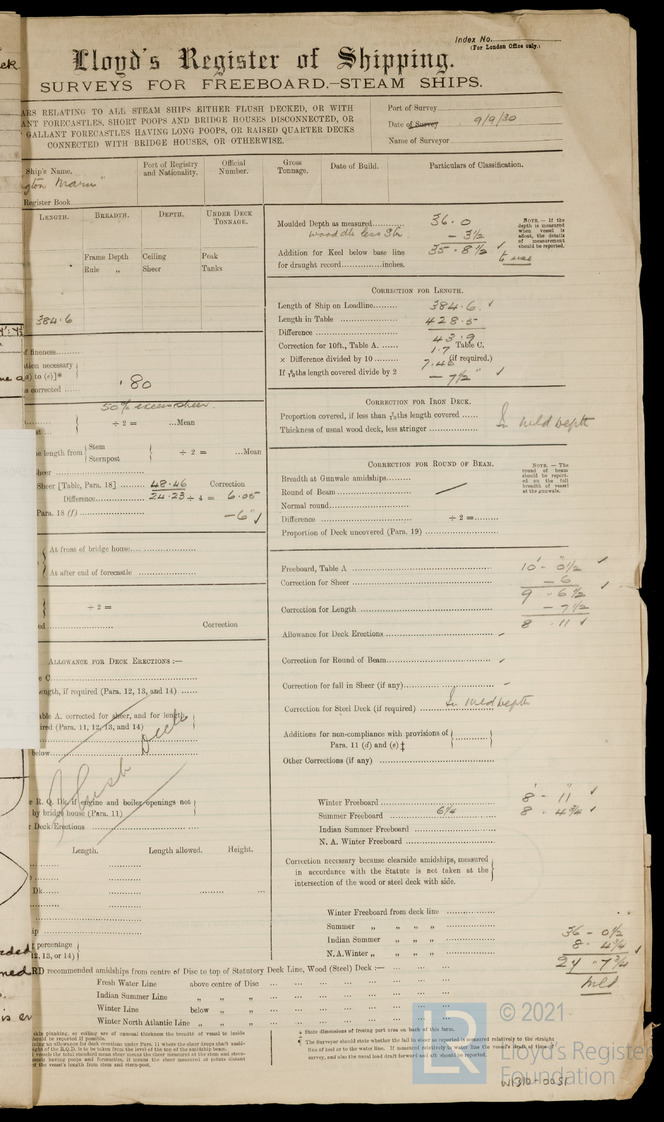 Index No.
(For London Office only.)
Lloyd's Register of Shipping.
SURVEYS FOR FREEBOARD.—STEAM SHIPS.
ARS RELATING TO ALL STEAM SHIPS EITHER FLUSH DECKED, OR WITH
ANT FORECASTLES, SHORT POOPS AND BRIDGE HOUSES DISCONNECTED, OR
GALLANT FORECASTLES HAVING LONG POOPS, OR RAISED QUARTER DECKS
CONNECTED WITH BRIDGE HOUSES, OR OTHERWISE.
Port of Survey
Date of Survey 9/9/30
Name of Surveyor
Ship's Name.
Port of Registry and Nationality.
Official Number.
Gross Tonnage.
Date of Build.
Particulars of Classification.
gton Maru"
Register Book
LENGTH. BREADTH. DEPTH. UNDER DECK TONNAGE.
Frame Depth Ceiling Peak
Rule „ Sheer Tanks
384.6
f fineness
tion necessary
s corrected .80
50% excess sheer
÷ 2 = ...Mean
e length from Stem
Sternpost ÷ 2 = ...Mean
Sheer
Sheer [Table, Para. 18] 48.46 Correction
Difference 24.23 ÷ 4 = 6.05
Para. 18 (f) —6" ✓
At front of bridge house
At after end of forecastle
÷ 2 =
ed Correction
ALLOWANCE FOR DECK ERECTIONS :—
e C
ength, if required (Para. 12, 13, and 14)
able A. corrected for sheer, and for length
ired (Para. 11, 12, 13, and 14)
below
Flush Deck
e R. Q. Dk. if engine and boiler openings not
by bridge house (Para. 11)
r Deck Erections
Length. Length allowed. Height.
Dk
ip
percentage
12, 13, or 14)
Moulded Depth as measured 36.0
wood dk less 3½ — 3½
Addition for Keel below base line 35.8½ ✓
for draught record inches.
NOTE.—If the depth is measured when vessel is afloat, the details of measurement should be reported.
CORRECTION FOR LENGTH.
Length of Ship on Loadline 384.6 ✓
Length in Table 428.5
Difference 43.9
Correction for 10ft., Table A. 1.7 Table C.
× Difference divided by 10 7.46 (if required.)
If 6/10ths length covered divide by 2 — 7½" ✓
CORRECTION FOR IRON DECK.
Proportion covered, if less than 7/10ths length covered
Thickness of usual wood deck, less stringer
In mld Depth
CORRECTION FOR ROUND OF BEAM.
Breadth at Gunwale amidships
Round of Beam
Normal round
Difference ÷ 2 =
Proportion of Deck uncovered (Para. 19)
NOTE.—The round of beam should be reported on the full breadth of vessel at the gunwale.
Freeboard, Table A 10' - 0½" ✓
Correction for Sheer — 6 ✓
9 - 6½
Correction for Length — 7½
8 . 11 ✓
Allowance for Deck Erections
Correction for Round of Beam
Correction for fall in Sheer (if any)
Correction for Steel Deck (if required) In mld Depth
Additions for non-compliance with provisions of
Para. 11 (d) and (e) ‡
Other Corrections (if any)
Winter Freeboard 8' - 11" ✓
Summer Freeboard 6¼ 8 - 4¾ ✓
Indian Summer Freeboard
N. A. Winter Freeboard
Correction necessary because clearside amidships, measured
in accordance with the Statute is not taken at the
intersection of the wood or steel deck with side.
Winter Freeboard from deck line
Summer „ „ „ „
Indian Summer „ „ „
N.A. Winter „ „ „ „
36 - 0½
8 . 4¾
27 - 7¾
mld
RD recommended amidships from centre of Disc to top of Statutory Deck Line, Wood (Steel) Deck :—
Fresh Water Line above centre of Disc
Indian Summer Line „ „ „
Winter Line below „ „
Winter North Atlantic Line „ „ „
* State dimensions of freeing port area on back of this form.
© 2021
Lloyd's Register
Foundation
W1310-0051